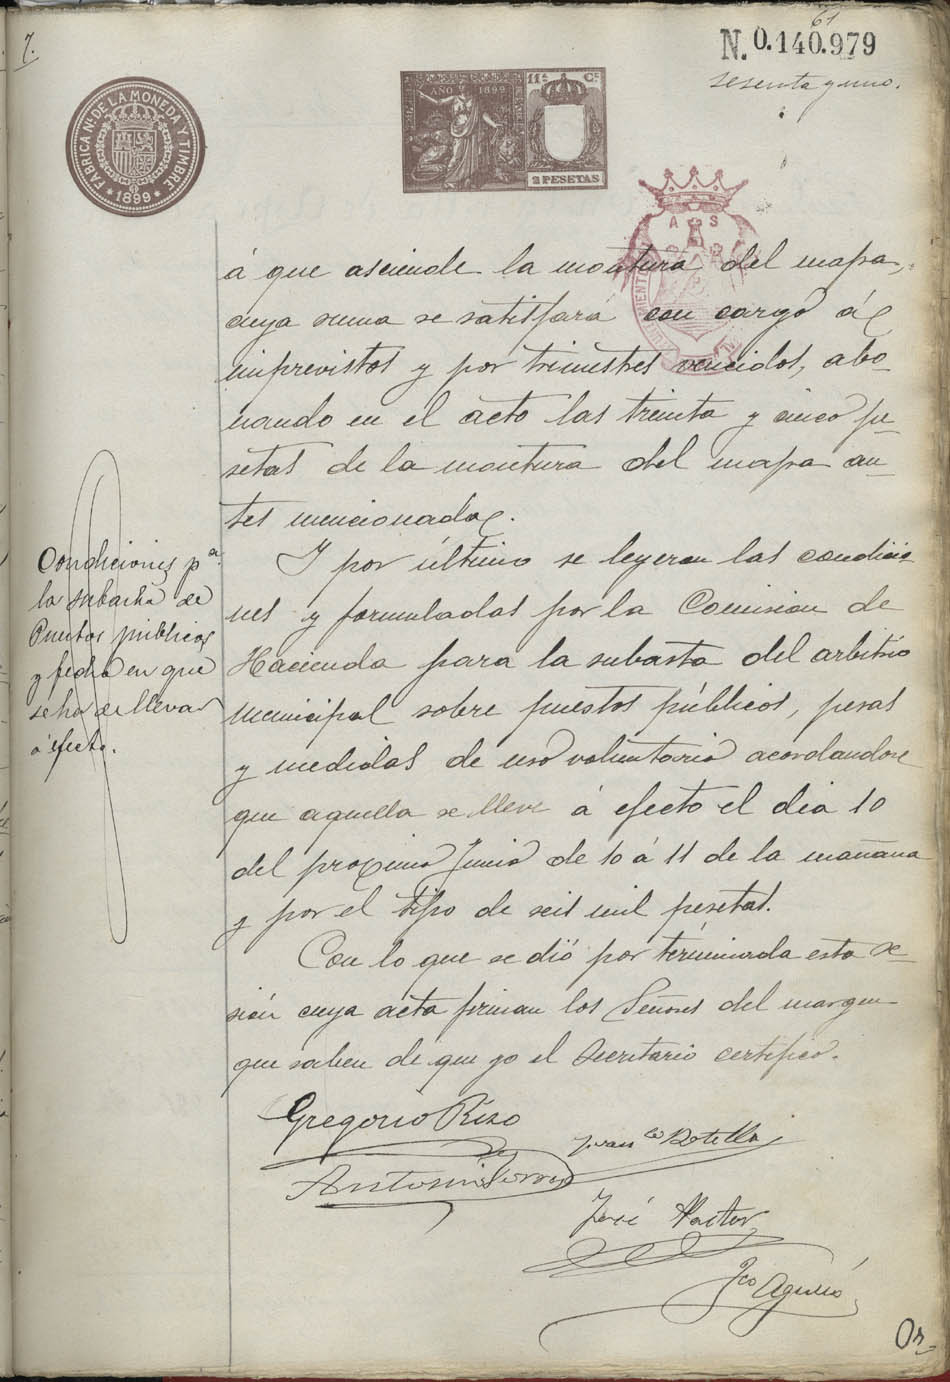 7.
61
N. 0.140.979
sesenta y uno.
FABRICA NL. DE LA MONEDA Y TIMBRE
* 1899 *
AÑO 1899
11ª Cª
2 PESETAS
A S
á que asciende la montura del mapa,
cuya suma se satisfará con cargo á
imprevistos y por trimestres vencidos, abo-
nando en el acto las treinta y cinco pe-
setas de la montura del mapa an-
tes mencionado.
Condiciones pª
la subasta de
Puestos publicos
y fecha en que
se ha de llevar
á efecto.
Y por último se leyeron las condicio-
nes y formuladas por la Comision de
Hacienda para la subasta del arbitrio
municipal sobre puestos públicos, pesas
y medidas de uso voluntario acordandose
que aquella se lleve á efecto el dia 10
del proximo Junio de 10 á 11 de la mañana
y por el tipo de seis mil pesetas.
Con lo que se dió por terminada esta se-
sión cuya acta firman los Señores del margen
que saben de que yo el Secretario certifico.
Gregorio Rizo
Franco Botella
Antonio
José Pastor
Fco
Or-